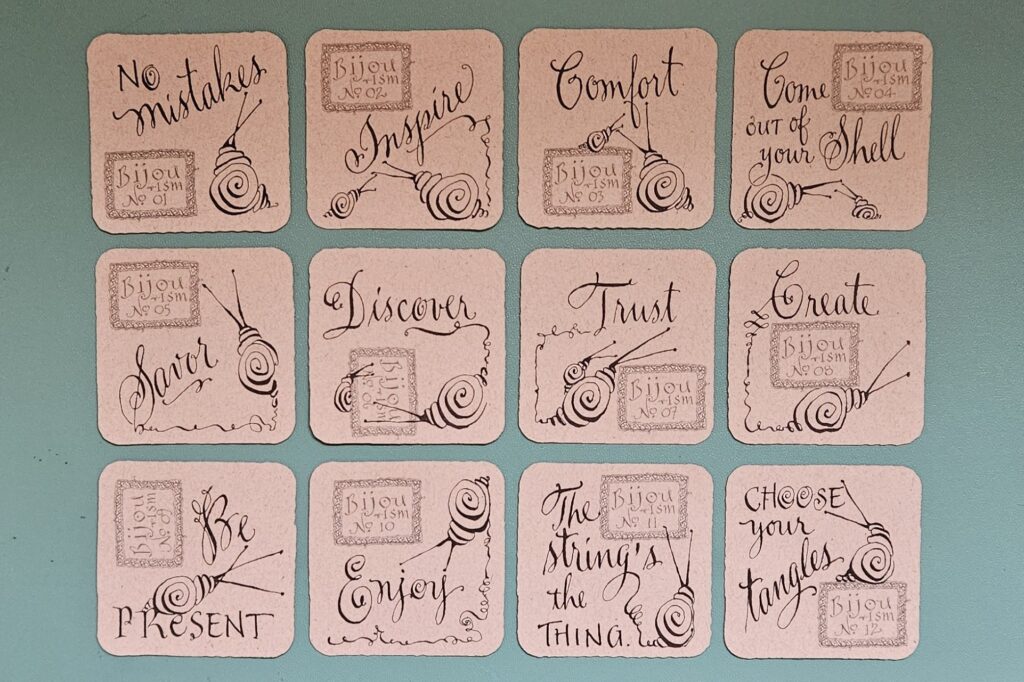 No
mistakes
Bijou
-ism
Nº 01
Bijou
-ism
Nº 02
Inspire
Comfort
Bijou
-ism
Nº 03
Bijou
-ism
Nº 04
Come
OUT OF
your Shell
Bijou
-ism
Nº 05
Savor
Discover
Bijou
-ism
Nº 06
Trust
Bijou
-ism
Nº 07
Create
Bijou
-ism
Nº 08
Bijou
-ism
Nº 09
Be
PRESENT
Bijou
-ism
Nº 10
Enjoy
Bijou
-ism
Nº 11
The
string's
the
THING.
CHOOSE
your
tangles
Bijou
-ism
Nº 12